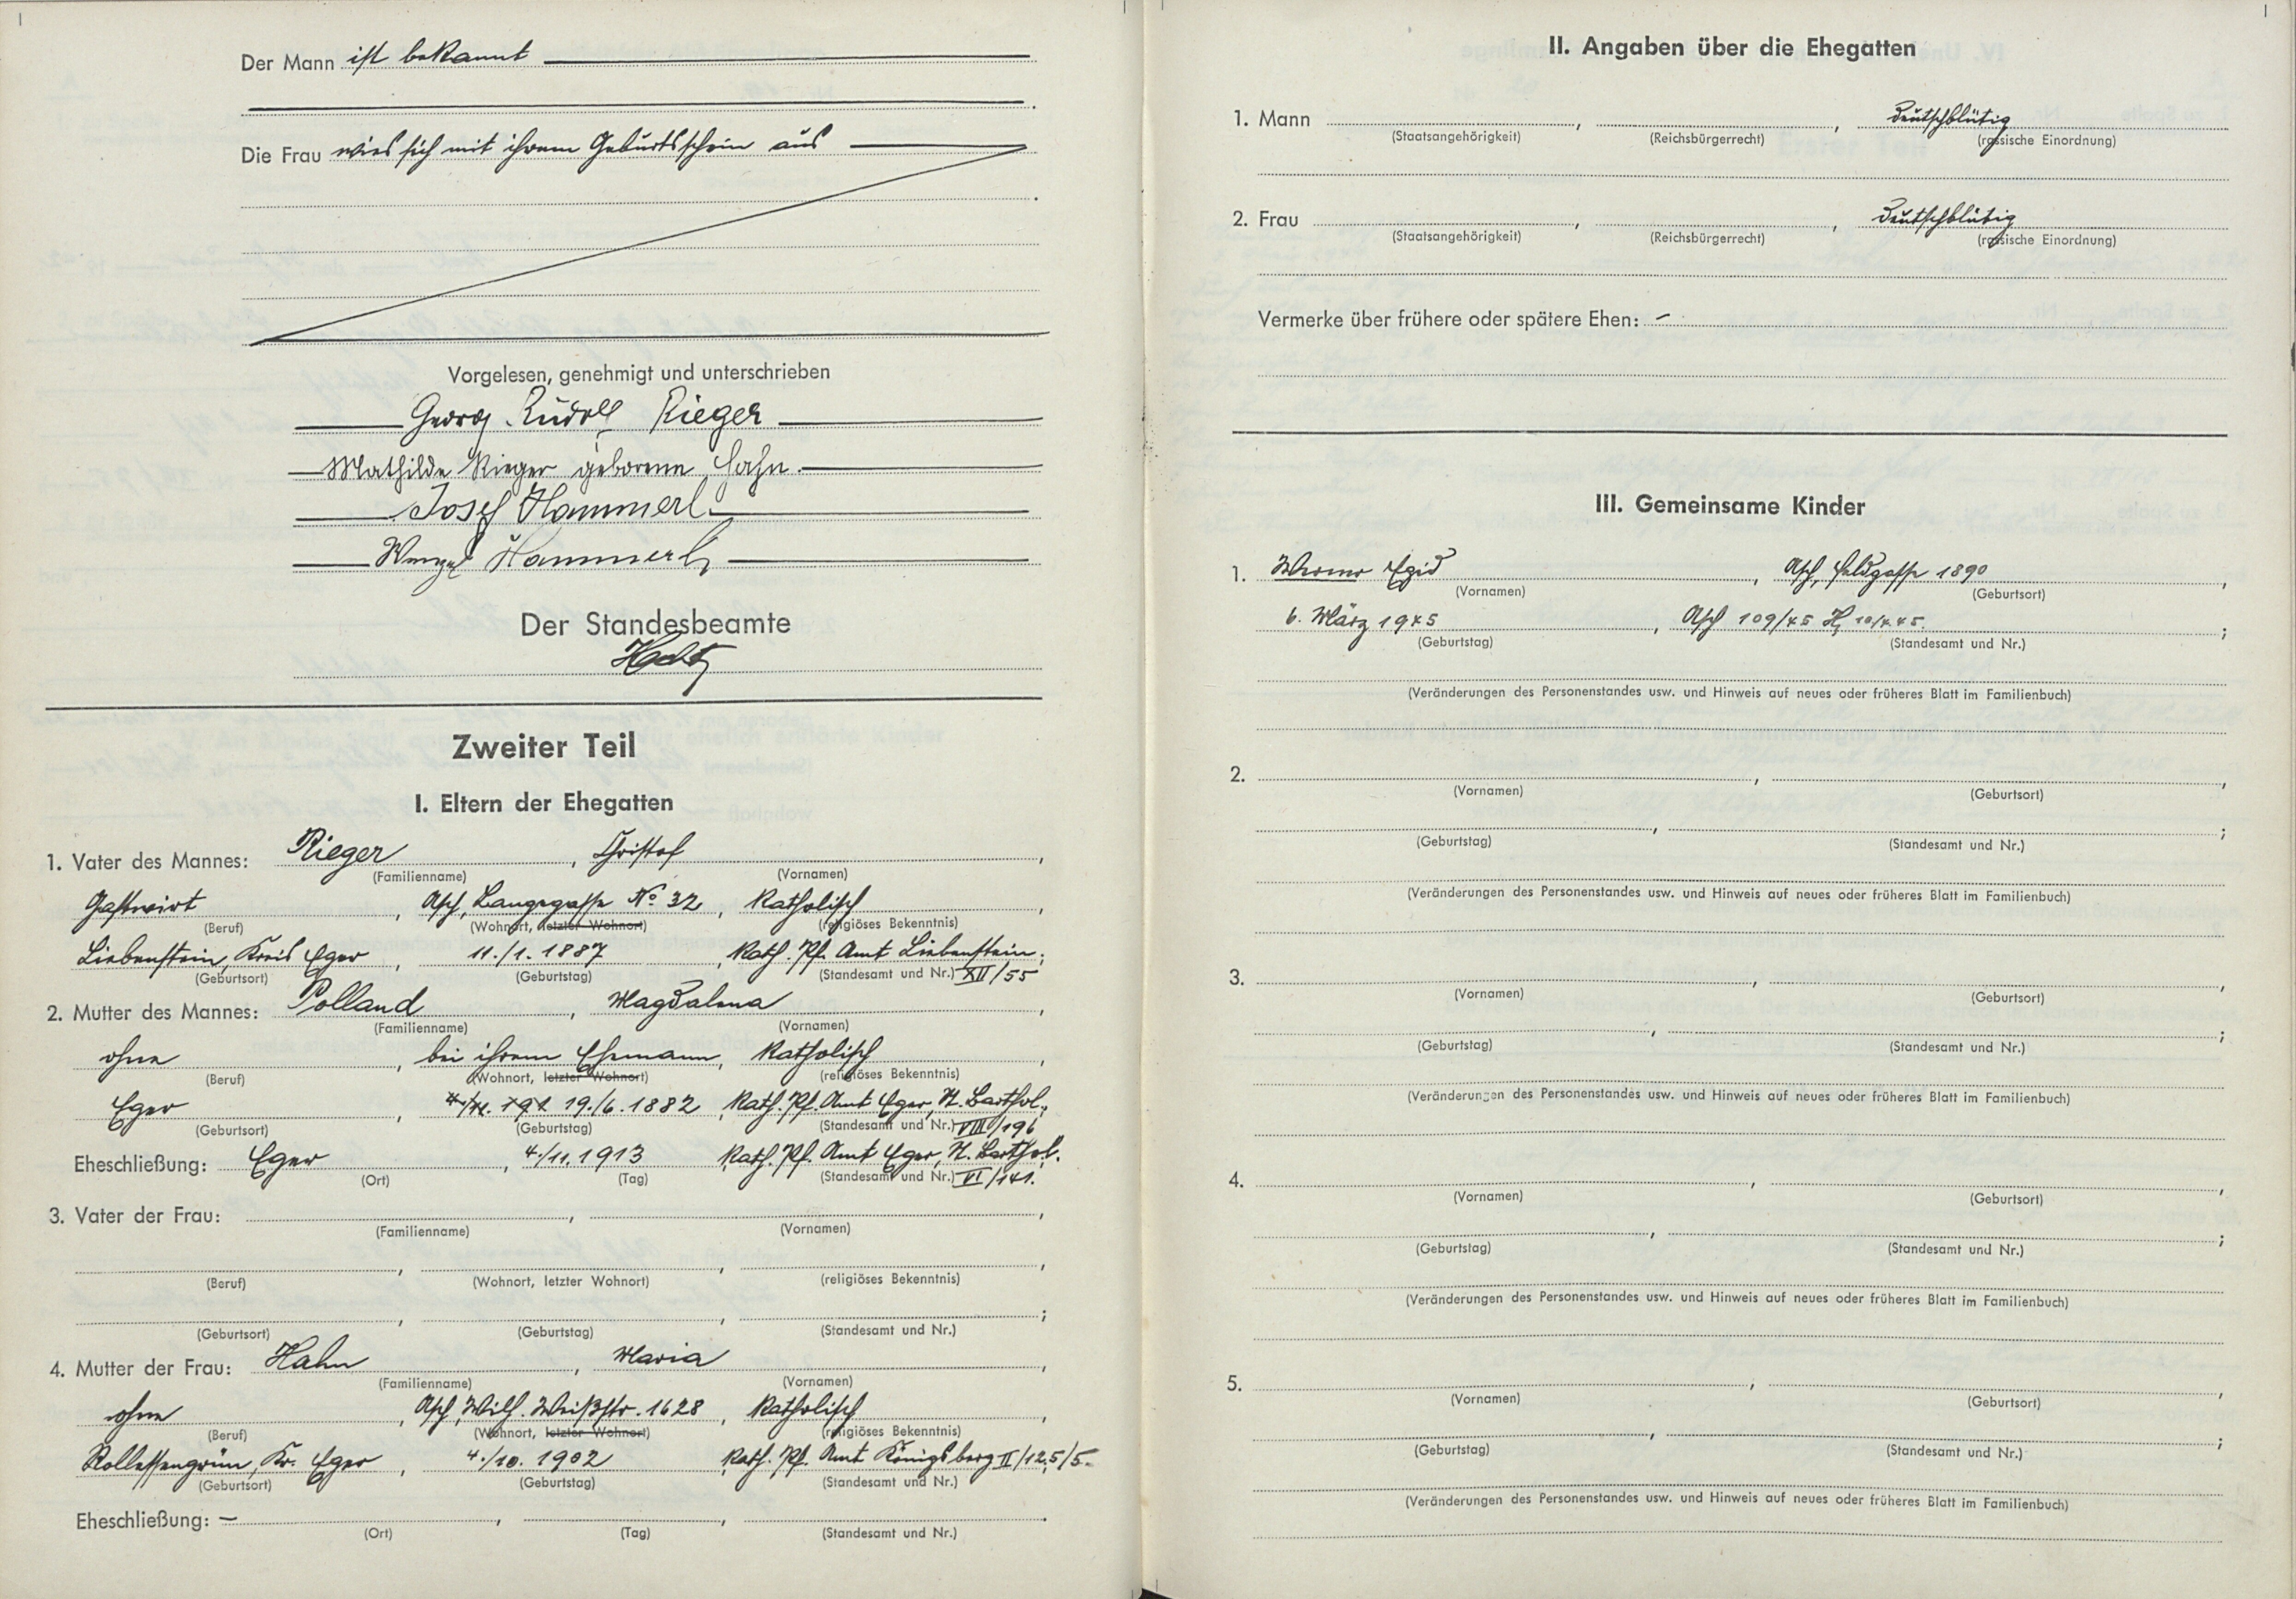 Der Mann ist bekannt
Die Frau wies sich mit ihrem Geburtsschein aus
Vorgelesen, genehmigt und unterschrieben
Georg Rudolf Rieger
Mathilde Rieger geborene Hahn.
Josef Hammerl
Wenzel Hammerl
Der Standesbeamte
Zweiter Teil
I. Eltern der Ehegatten
1. Vater des Mannes: Rieger, Christof,
(Familienname) (Vornamen)
Gastwirt, Asch, Langegasse No 32, Katholisch,
(Beruf) (Wohnort, letzter Wohnort) (religiöses Bekenntnis)
Liebenstein, Kreis Eger, 11./1. 1887, Kath. Pf. Amt Liebenstein;
(Geburtsort) (Geburtstag) (Standesamt und Nr.) XII/55
2. Mutter des Mannes: Polland, Magdalena,
(Familienname) (Vornamen)
ohne, bei ihrem Ehemann, Katholisch,
(Beruf) (Wohnort, letzter Wohnort) (religiöses Bekenntnis)
Eger, 4./11. 191 19./6. 1882, Kath. Pf. Amt Eger, St. Barthol.;
(Geburtsort) (Geburtstag) (Standesamt und Nr.) VIII/196
Eheschließung: Eger, 4./11. 1913, Kath. Pf. Amt Eger, St. Barthol.
(Ort) (Tag) (Standesamt und Nr.) VI/141.
3. Vater der Frau: , ,
(Familienname) (Vornamen)
, , ,
(Beruf) (Wohnort, letzter Wohnort) (religiöses Bekenntnis)
, , ;
(Geburtsort) (Geburtstag) (Standesamt und Nr.)
4. Mutter der Frau: Hahn, Maria,
(Familienname) (Vornamen)
ohne, Asch, Wilh. Weißstr. 1628, Katholisch,
(Beruf) (Wohnort, letzter Wohnort) (religiöses Bekenntnis)
Rollessengrün, Kr. Eger, 4./10. 1902 Kath. Pf. Amt Königsberg II/125/5.
(Geburtsort) (Geburtstag) (Standesamt und Nr.)
Eheschließung: – , , .
(Ort) (Tag) (Standesamt und Nr.)
II. Angaben über die Ehegatten
1. Mann , , Deutschblütig
(Staatsangehörigkeit) (Reichsbürgerrecht) (rassische Einordnung)
2. Frau , , Deutschblütig
(Staatsangehörigkeit) (Reichsbürgerrecht) (rassische Einordnung)
Vermerke über frühere oder spätere Ehen: –
III. Gemeinsame Kinder
1. Werner Egid, Asch, Feldgasse 1890,
(Vornamen) (Geburtsort)
6. März 1945, Asch 109/45 H, 10/4.45. ;
(Geburtstag) (Standesamt und Nr.)
(Veränderungen des Personenstandes usw. und Hinweis auf neues oder früheres Blatt im Familienbuch)
2. , ,
(Vornamen) (Geburtsort)
, ;
(Geburtstag) (Standesamt und Nr.)
(Veränderungen des Personenstandes usw. und Hinweis auf neues oder früheres Blatt im Familienbuch)
3. , ,
(Vornamen) (Geburtsort)
, ;
(Geburtstag) (Standesamt und Nr.)
(Veränderungen des Personenstandes usw. und Hinweis auf neues oder früheres Blatt im Familienbuch)
4. , ,
(Vornamen) (Geburtsort)
, ;
(Geburtstag) (Standesamt und Nr.)
(Veränderungen des Personenstandes usw. und Hinweis auf neues oder früheres Blatt im Familienbuch)
5. , ,
(Vornamen) (Geburtsort)
, ;
(Geburtstag) (Standesamt und Nr.)
(Veränderungen des Personenstandes usw. und Hinweis auf neues oder früheres Blatt im Familienbuch)